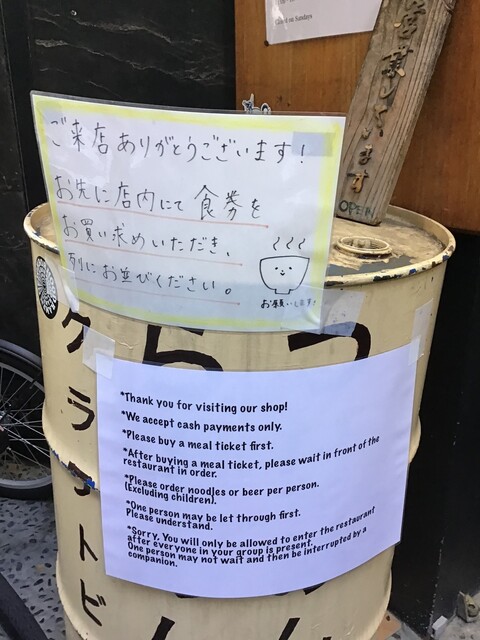 Closed on Sundays
営業してます
OPEN
ご来店ありがとうございます!
お先に店内にて食券を
お買い求めいただき、
列にお並びください。
お願いします!
クラフトビ
*Thank you for visiting our shop!
*We accept cash payments only.
*Please buy a meal ticket first.
*After buying a meal ticket, please wait in front of the
restaurant in order.
*Please order noodles or beer per person.
(Excluding children).
*One person may be let through first.
Please understand.
*Sorry, You will only be allowed to enter the restaurant
after everyone in your group is present.
One person may not wait and then be interrupted by a
companion.